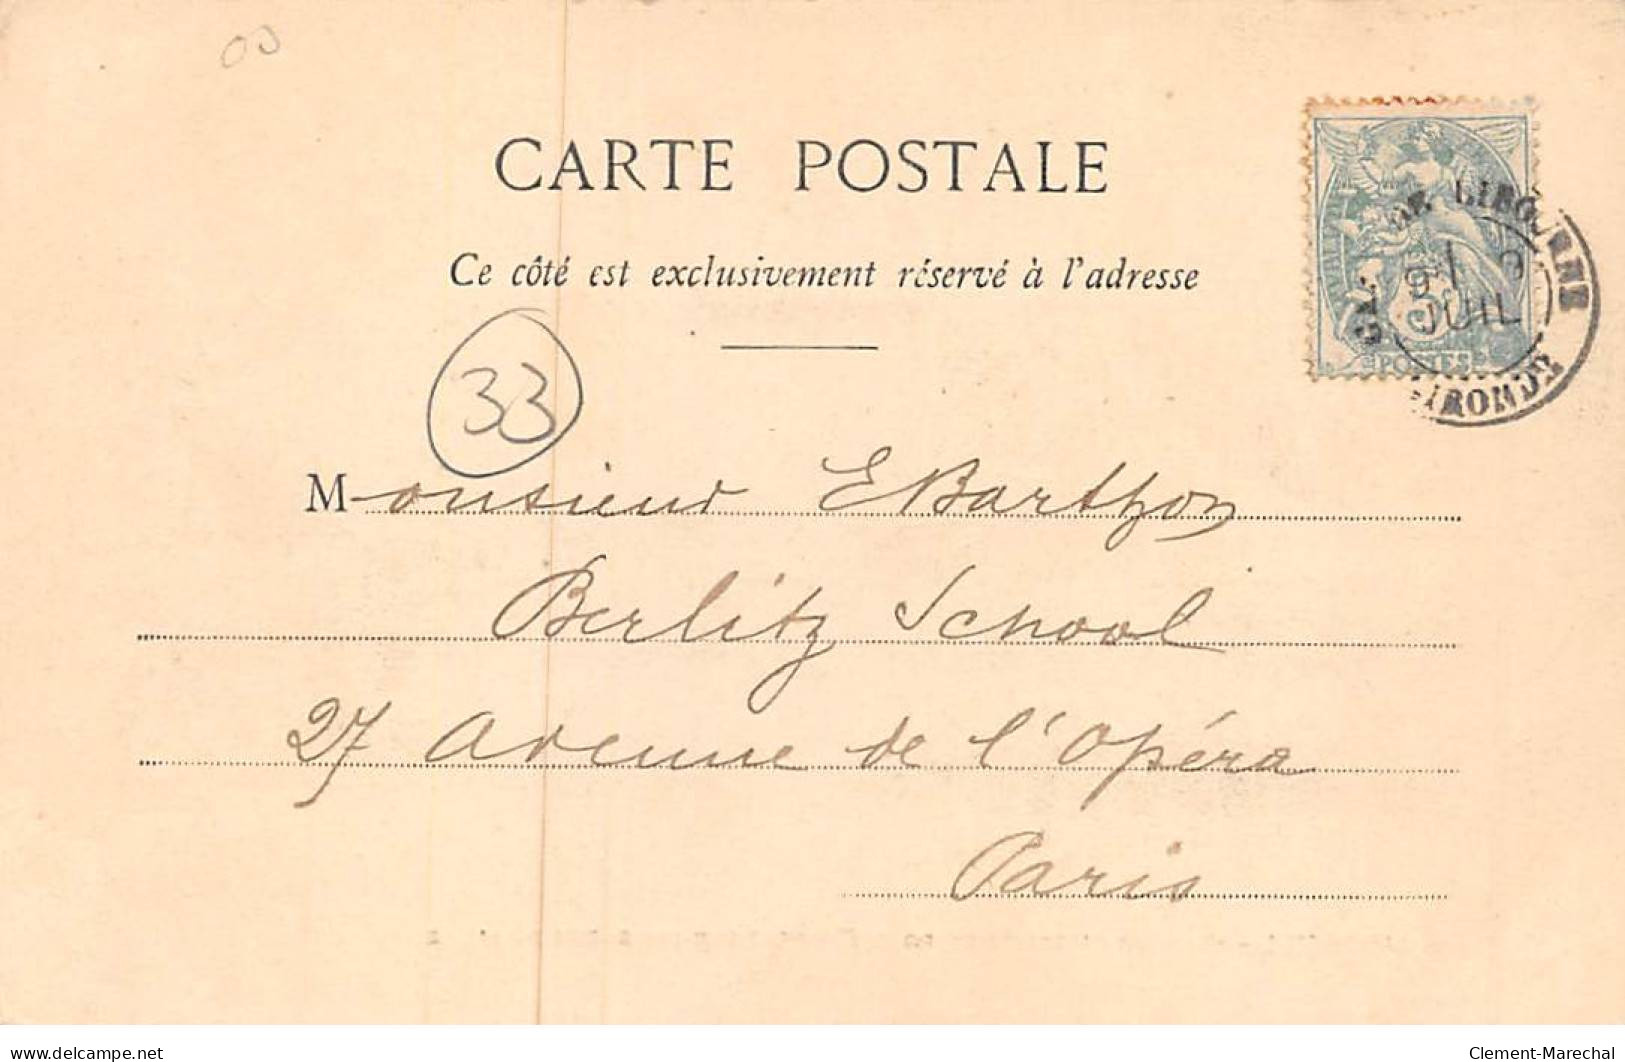 CARTE POSTALE
Ce côté est exclusivement réservé à l'adresse
33
Monsieur E Barthon
Berlitz School
27 Avenue de l'Opéra
Paris
DE LIBOURNE
JUIL
GIRONDE
5
POSTES
delcampe.net
Clement-Marechal